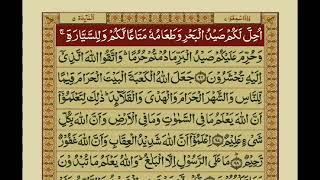 المآئدة ٥
واذاسمعوا ٧
اُحِلَّ لَكُمْ صَيْدُ الْبَحْرِ وَطَعَامُهٗ مَتَاعًا لَّكُمْ وَلِلسَّيَّارَةِ ۚ
وَحُرِّمَ عَلَيْكُمْ صَيْدُ الْبَرِّ مَا دُمْتُمْ حُرُمًا ؕ وَاتَّقُوا اللّٰهَ الَّذِیْۤ
اِلَيْهِ تُحْشَرُوْنَ ﴿۹۶﴾ جَعَلَ اللّٰهُ الْكَعْبَةَ الْبَيْتَ الْحَرَامَ قِيٰمًا
لِّلنَّاسِ وَالشَّهْرَ الْحَرَامَ وَالْهَدْیَ وَالْقَلَآئِدَ ؕ ذٰلِكَ لِتَعْلَمُوْۤا
اَنَّ اللّٰهَ يَعْلَمُ مَا فِی السَّمٰوٰتِ وَمَا فِی الْاَرْضِ وَاَنَّ اللّٰهَ بِكُلِّ
شَیْءٍ عَلِيْمٌ ﴿۹۷﴾ اِعْلَمُوْۤا اَنَّ اللّٰهَ شَدِيْدُ الْعِقَابِ وَاَنَّ اللّٰهَ غَفُوْرٌ
رَّحِيْمٌ ﴿۹۸﴾ مَا عَلَی الرَّسُوْلِ اِلَّا الْبَلٰغُ ؕ وَاللّٰهُ يَعْلَمُ مَا تُبْدُوْنَ